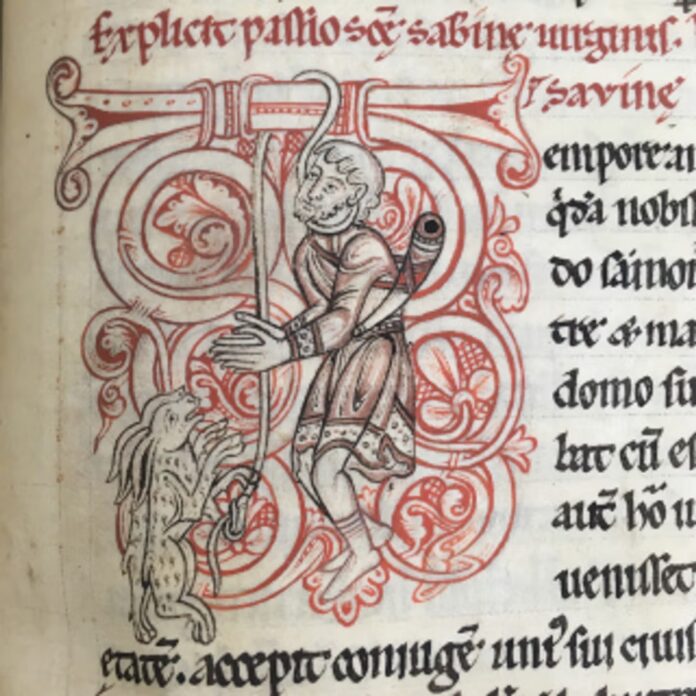 Explicit passio scę sabine uirginis.
savinę
T
empore
qd̄a nobis
do
trē & ma
domo su
bat cū ei
aut̄ hō u
uenisset
etatē. accepit coniugē uni sui eius